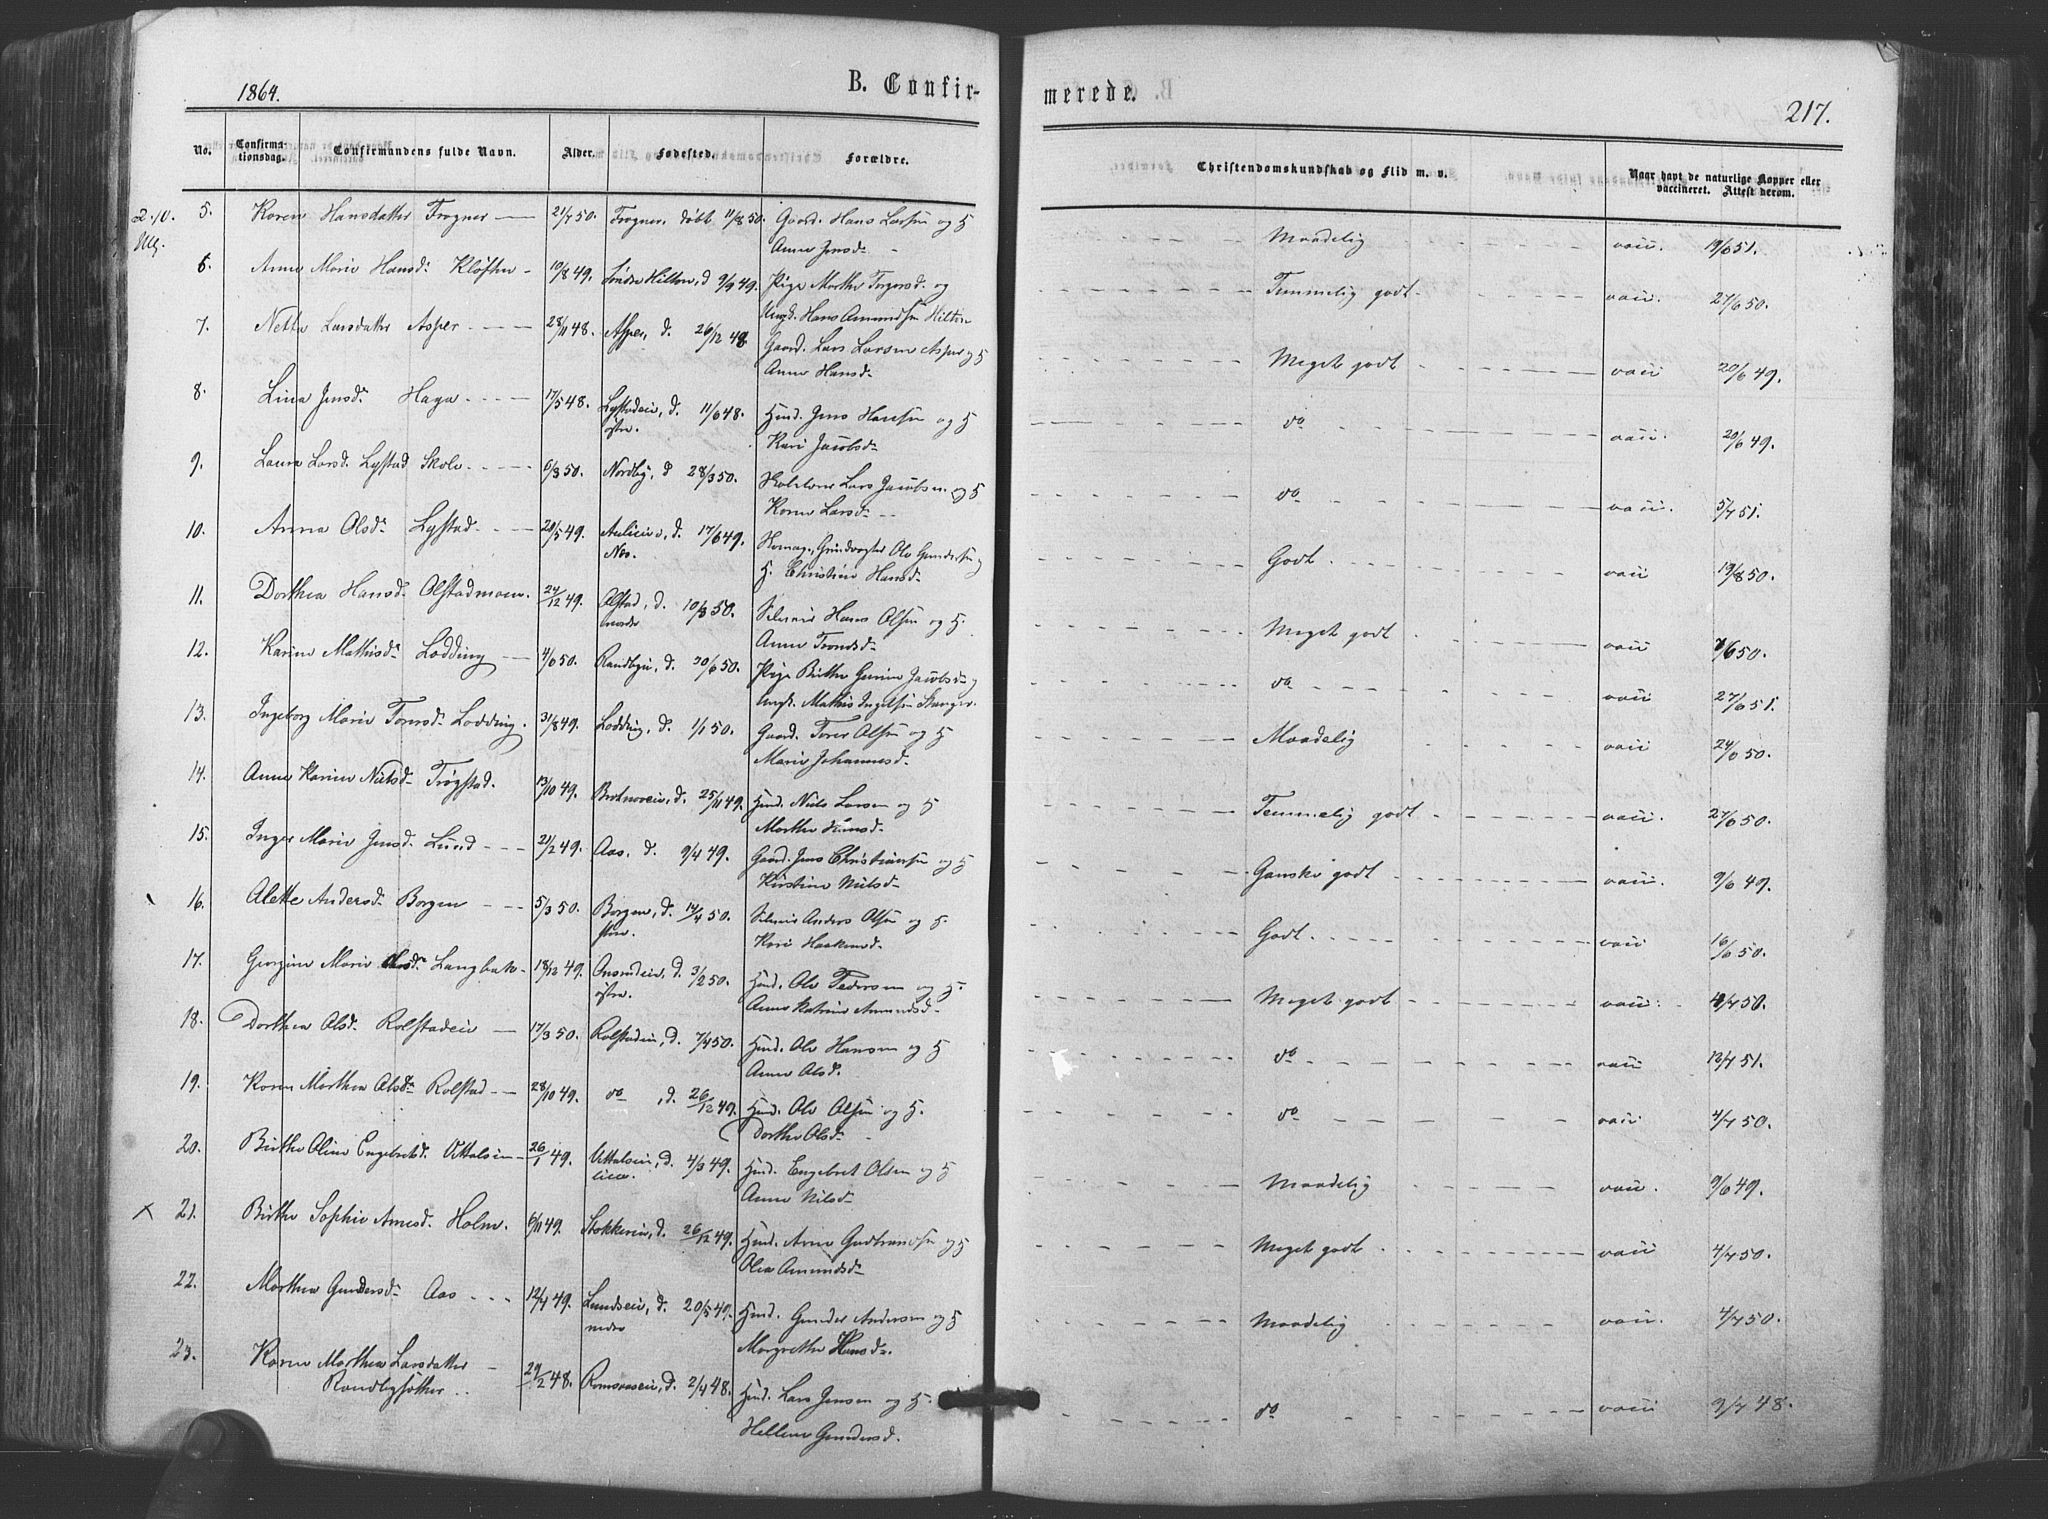 1864.
B. Confir-
merede.
217.
No.
Confirma-
tionsdag.
Confirmandens fulde Navn.
Alder.
Fødested.
Forældre.
Christendomskundskab og Flid m. v.
Naar havt de naturlige Kopper eller
vaccineret. Attest derom.
5. Karen Hansdatter Frogner 21/7 50. Frogner, døbt 11/8 50. Gaard. Hans Larsen og H
Anne Jensd. Maadelig vacc. 19/6 51.
6. Anne Marie Hansd. Kløften 10/8 49. Søndre Hilton, d 9/9 49. Pige Marthe Torgersd. og
Ungk. Hans Amundsen Hilton Temmelig godt vacc. 27/6 50.
7. Nette Larsdatter Asper 28/11 48. Asper, d. 26/12 48 Gaard. Lars Larsen Asper og H
Anne Hansd. Meget godt vacc 20/6 49.
8. Lina Jensd. Haga 17/5 48. Lystadeie, d. 11/6 48. Husd. Jens Hansen og H
østre. Kari Jacobsd. do vacc. 20/6 49.
9. Laura Larsd. Lystad Skole 6/3 50. Nordby, d 28/3 50. Lars Jacobsen og H
Karen Larsd. do vacc. 5/7 51.
10. Anna Olsd. Lystad 20/5 49. d. 17/6 49. Ole Gundersen og
H. Christine Hansd. Godt vacc 19/8 50.
11. Dorthea Hansd. Olstadmoen. 24/12 49. Olstad, d. 10/3 50. Selveier Hans Olsen og H.
nordre Anne Trondsd. Meget godt vacc /6 50.
12. Karine Mathisd. Lodding 4/6 50. Randbyeie, d. 30/6 50. Pige Birthe Gurine Jacobsd. og
Ungk. Mathis Stanger. do vacc 27/6 51.
13. Ingeborg Marie Torersd. Lodding. 31/8 49. Lodding, d. 1/1 50. Gaard. Torer Olsen og H
Marie Johannesd. Maadelig vacc 24/6 50.
14. Anne Karine Nielsd. Trøgstad. 13/10 49. d. 25/11 49. Husd. Niels Larsen og H
Marthe Hansd. Temmelig godt vacc. 27/6 50.
15. Inger Marie Jensd. Lund 21/2 49. Aas. d. 9/4 49. Gaard. Jens Christiansen og H
Kirstine Nielsd. Ganske godt vacc. 9/6 49.
16. Alette Andersd. Borgen 5/3 50. Borgen, d. 14/4 50. Selveier Anders Olsen og H.
store. Kari Haakensd. Godt vacc 16/6 50.
17. Georgine Marie Olsd. Langbak 18/12 49. d. 3/2 50. Husd. Ole Pedersen og H.
østre Anne Katrine Amundsd. Meget godt vacc. /7 50.
18. Dorthea Olsd. Rolstadeie 17/3 50. Rolstadeie, d. 7/4 50. Husd. Ole Hansen og H
Anne Olsd. do vacc 12/7 51.
19. Karen Marthea Olsd. Rolstad 28/10 49. do, d. 26/12 49. Husd. Ole Olsen og H.
Dorthe Olsd. do vacc 4/7 50.
20. Birthe Oline Engebretsd. 26/1 49. d. 4/3 49. Husd. Engebret Olsen og H
Anne Nilsd. Maadelig vacc. 9/6 49.
x 21. Birthe Sophie Arnesd. Holm. 6/11 49. Stokkereie, d. 26/12 49. Husd. Arne Gudbrandsen og H
Olea Amundsd. Meget godt vacc 4/7 50.
22. Marthea Gundersd. Aas 12/4 49. Lundseie, d. 20/5 49. Husd. Gunder Andersen og H
nedre Margrethe Hansd. Maadelig vacc. 4/7 50.
23. Karen Marthea Larsdatter 29/2 48. d. 2/4 48. Husd. Lars Jensen og H.
Hellene Gundersd. do vacc 9/7 48.